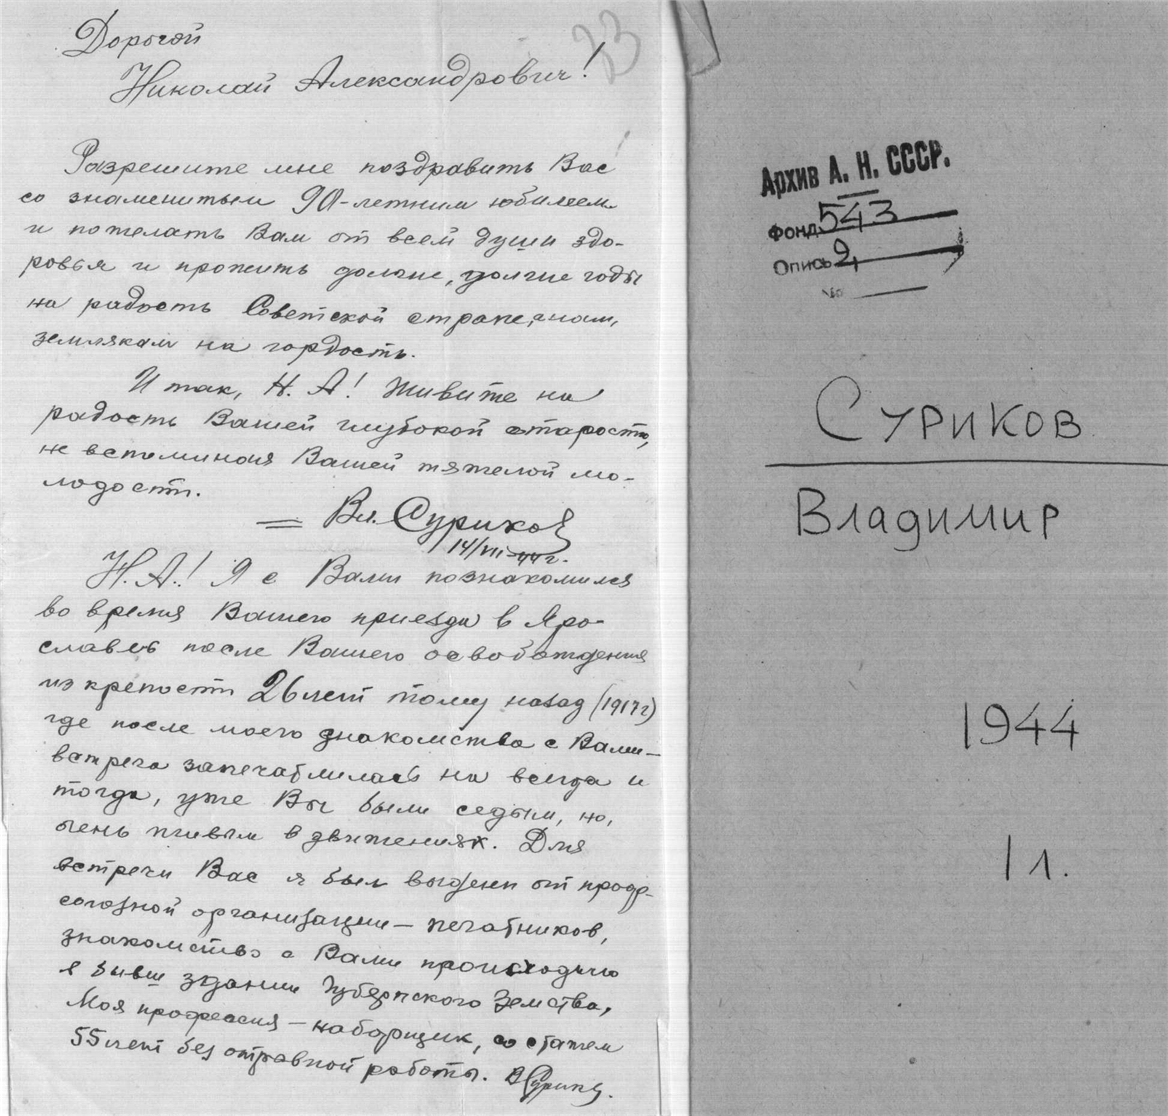 23
Дорогой
Николай Александрович!
Разрешите мне поздравить Вас
со знаменитым 90-летним юбилеем
и пожелать Вам от всей души здо-
ровья и прожить долгие, долгие годы
на радость Советской стране, нам,
землякам на гордость.
И так, Н. А! Живите на
радость Вашей глубокой старости,
не вспоминая Вашей тяжелой мо-
лодости.
Вл. Суриков
14/VII-44 г.
Н. А.! Я с Вами познакомился
во время Вашего приезда в Яро-
славль после Вашего освобождения
из крепости 26 лет тому назад (1917г)
где после моего знакомства с Вами—
встреча запечатлилась на всегда и
тогда, уже Вы были седым, но,
очень живым в движениях. Для
встречи Вас я был выделен от профе-
союзной организации— печатников,
знакомство с Вами происходило
в бывш здании Губернского Земства,
Моя профессия — наборщик, со стажем
55 лет безотравной работы. В Сурик
Архив А. Н. СССР.
Фонд 543
Опись 2
No
Суриков
Владимир
1944
1 л.